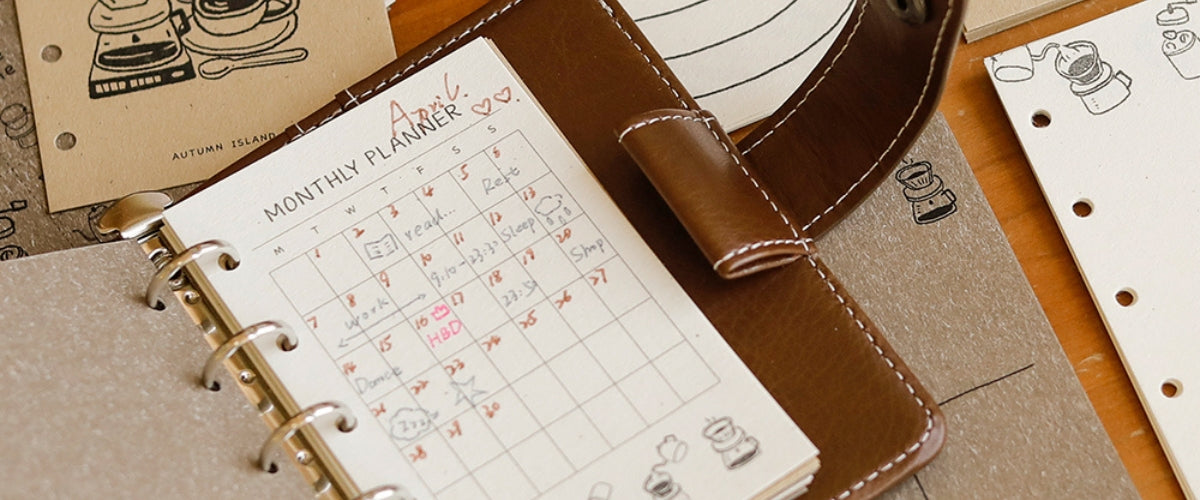 AUTUMN ISLAND
April.
MONTHLY PLANNER
M T W T F S S
1 2 3 4 5 6
read... Rest
7 8 9 10 11 12 13
work 9:10-23:30 Sleep
14 15 16 17 18 19 20
Dance HBD 23:50 Shop
21 22 23 24 25 26 27
zzz
28 29 30